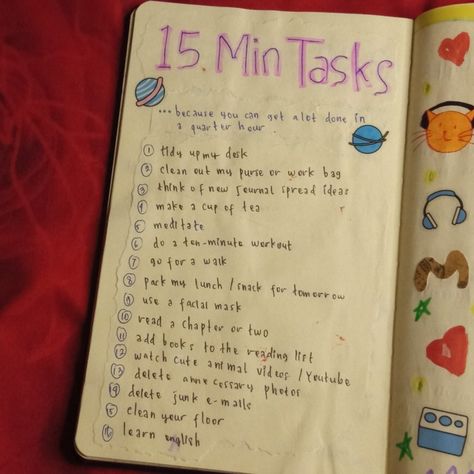 15 Min Tasks
... because you can get a lot done in
a quarter hour.
1 tidy up my desk
2 clean out my purse or work bag
3 think of new journal spread ideas
4 make a cup of tea
5 meditate
6 do a ten-minute workout
7 go for a walk
8 park my lunch / snack for tomorrow
9 use a facial mask
10 read a chapter or two
11 add books to the reading list
12 watch cute animal videos / Youtube
13 delete annecessary photos
14 delete junk e-mails
15 clean your floor
16 learn english